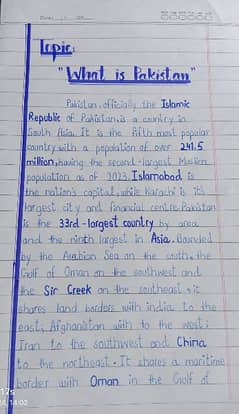 Topic:
"What is Pakistan"
Pakistan, officially the Islamic
Republic of Pakistan, is a country in
South Asia. It is the fifth most popular
country with a population of over 241.5
million, having the second-largest Muslim
population as of 2023. Islamabad is
the nation's capital, while Karachi is its
largest city and financial centre. Pakistan
is the 33rd-largest country by area
and the ninth largest in Asia. Bounded
by the Arabian Sea on the south, the
Gulf of Oman on the southwest and
the Sir Creek on the southeast, it
shares land borders with india to the
east, Afghanistan with to the west;
Iran to the southwest and China
to the northeast. It shares a maritime
border with Oman in the Gulf of
14:02